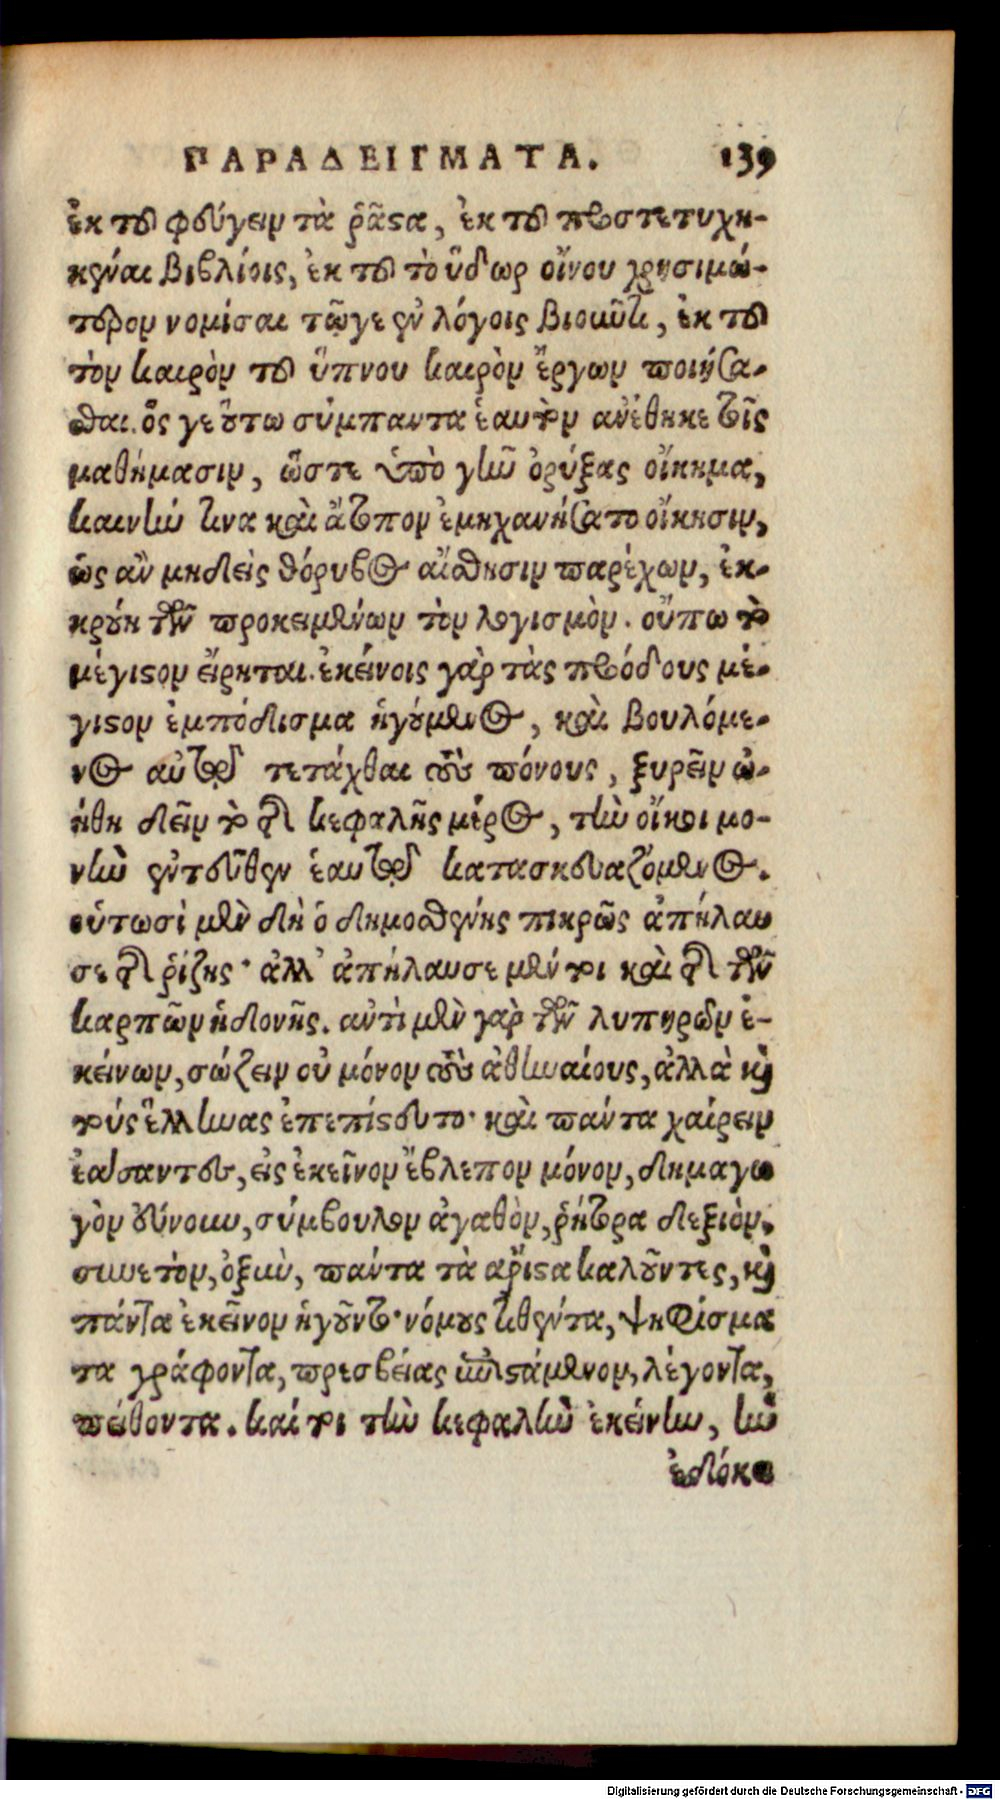 ΠΑΡΑΔΕΙΓΜΑΤΑ. 139
ἐκ τοῦ φεύγειν τὰ ῥᾷστα, ἐκ τοῦ προστετυχη-
κέναι βιβλίοις, ἐκ τοῦ τὸ ὕδωρ οἴνου χρησιμώ-
τερον νομίσαι τῷγε ἐν λόγοις βιοῦντι, ἐκ τοῦ
τὸν καιρὸν τοῦ ὕπνου καιρὸν ἔργων ποιήσα-
σθαι. ὅς γε οὕτω σύμπαντα ἑαυτὸν ἀνέθηκε τοῖς
μαθήμασιν, ὥστε ὑπὸ γῆν ὀρύξας οἴκημα,
καινήν τινα καὶ ἄτοπον ἐμηχανήσατο οἴκησιν,
ὡς ἂν μηδεὶς θόρυβος αἴσθησιν παρέχων, ἐκ-
κρούῃ τῶν προκειμένων τὸν λογισμὸν. οὔπω τὸ
μέγιστον εἴρηται. ἐκείνοις γὰρ τὰς προόδους μέ-
γιστον ἐμπόδισμα ἡγούμενος, καὶ βουλόμε-
νος αὐτοῦ τετάχθαι τοὺς πόνους, ξυρεῖν ὠ-
ήθη δεῖν τὸ τῆς κεφαλῆς μέρος, τὴν οἴκοι μο-
νὴν ἐντεῦθεν ἑαυτοῦ κατασκευαζόμενος.
οὑτωσὶ μὲν δὴ ὁ δημοσθένης πικρῶς ἀπήλαυ
σε τῆς ῥίζης· ἀλλ' ἀπήλαυσε μέντοι καὶ τῆς τῶν
καρπῶν ἡδονῆς. ἀντὶ μὲν γὰρ τῶν λυπηρῶν ἐ-
κείνων, σώζειν οὐ μόνον τοὺς ἀθηναίους, ἀλλὰ καὶ
τοὺς ἕλληνας ἐπεπίστευτο· καὶ πάντα χαίρειν
ἐάσαντες, εἰς ἐκεῖνον ἔβλεπον μόνον, δημαγω
γὸν εὔνουν, σύμβουλον ἀγαθὸν, ῥήτορα δεξιὸν,
συνετὸν, ὀξὺν, πάντα τὰ ἄριστα καλοῦντες, καὶ
πάντα ἐκεῖνον ἡγοῦντο· νόμους τιθέντα, ψηφίσμα
τα γράφοντα, πρεσβείας ὑποστάμενον, λέγοντα,
πείθοντα. καίτοι τὴν κεφαλὴν ἐκείνην, ἣν
ἐδόκει